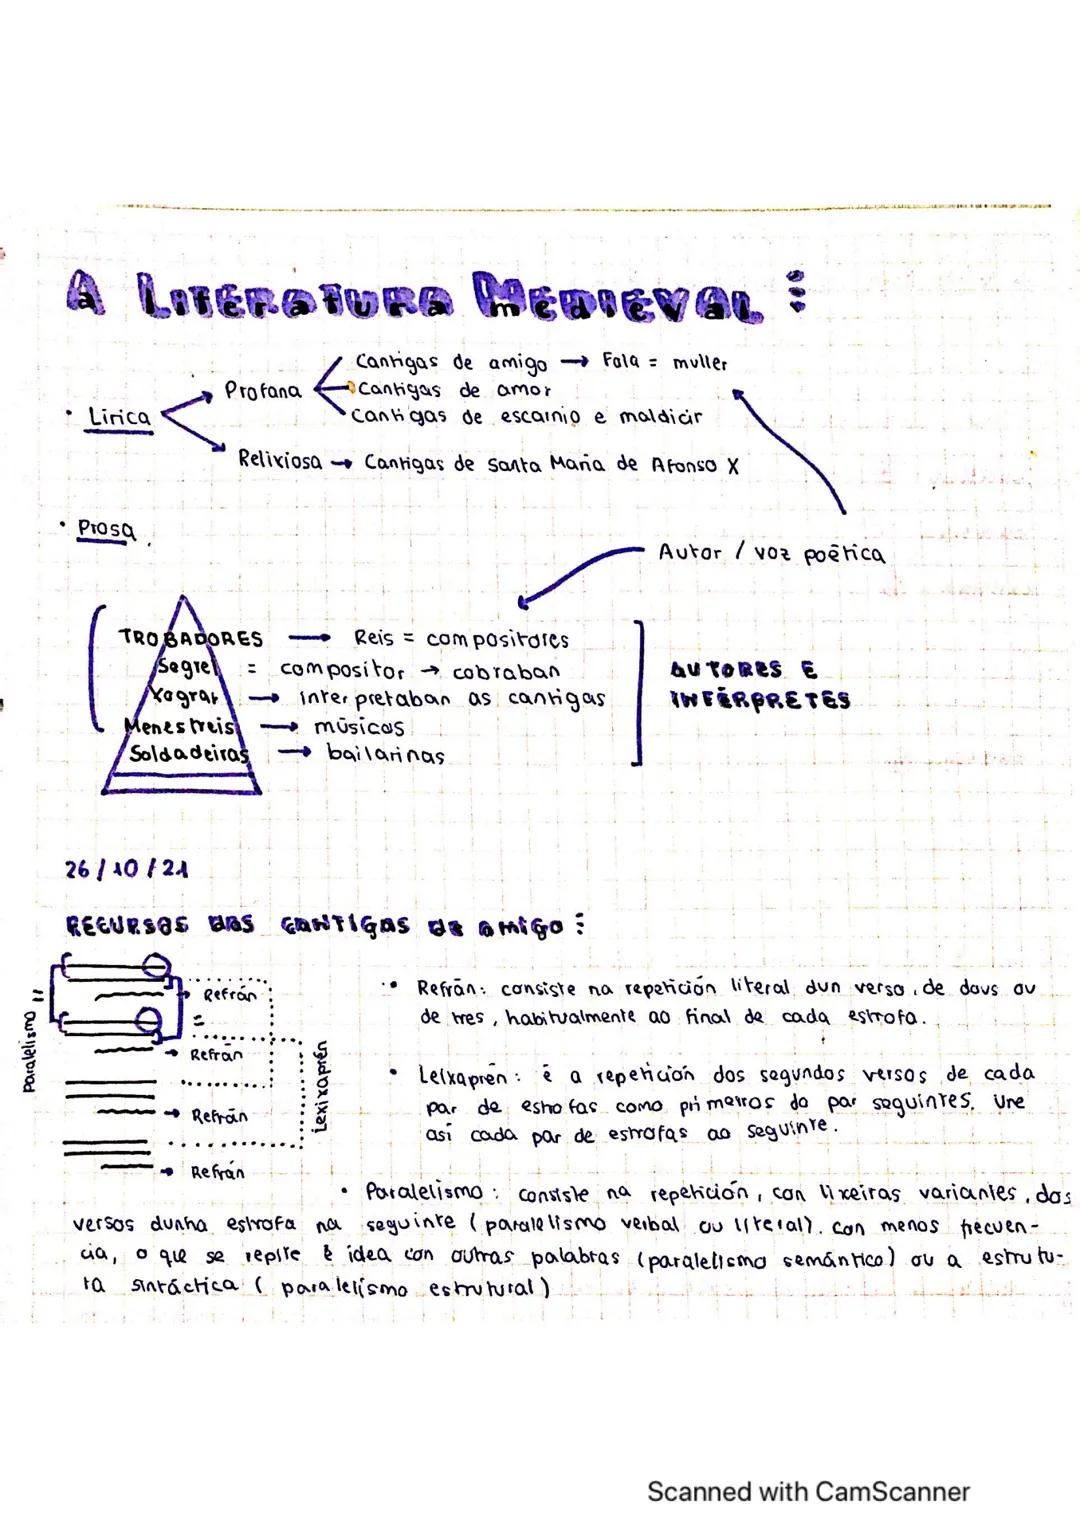 A LITERATURA MEDIEVAL:
Cantigas de amigo → Fala = muller
Profana
Cantigas de amor
· Lírica
Cantigas de escarnio e maldicir
Relixiosa → Cantigas de Santa María de Afonso X
· Prosa
Autor / voz poética
TROBADORES → Reis = compositores
Segrel = compositor → cobraban
Xograr → interpretaban as cantigas
Menestreis → músicos
Soldadeiras → bailarinas
AUTORES E
INTÉRPRETES
26/10/21
RECURSOS DAS CANTIGAS DE AMIGO:
Paralelismo =
Refrán
=
Refrán
Refrán
Refrán
Lexixaprén
· Refrán: consiste na repetición literal dun verso, de dous ou
de tres, habitualmente ao final de cada estrofa.
· Leixaprén: é a repetición dos segundos versos de cada
par de estrofas como primeiros do par seguintes. Une
así cada par de estrofas ao seguinte.
· Paralelismo: consiste na repetición, con lixeiras variantes, dos
versos dunha estrofa na seguinte (paralelismo verbal ou literal). Con menos frecuen-
cia, o que se repite é idea con outras palabras (paralelismo semántico) ou a estrutu-
ra sintáctica (paralelismo estrutural)
Scanned with CamScanner